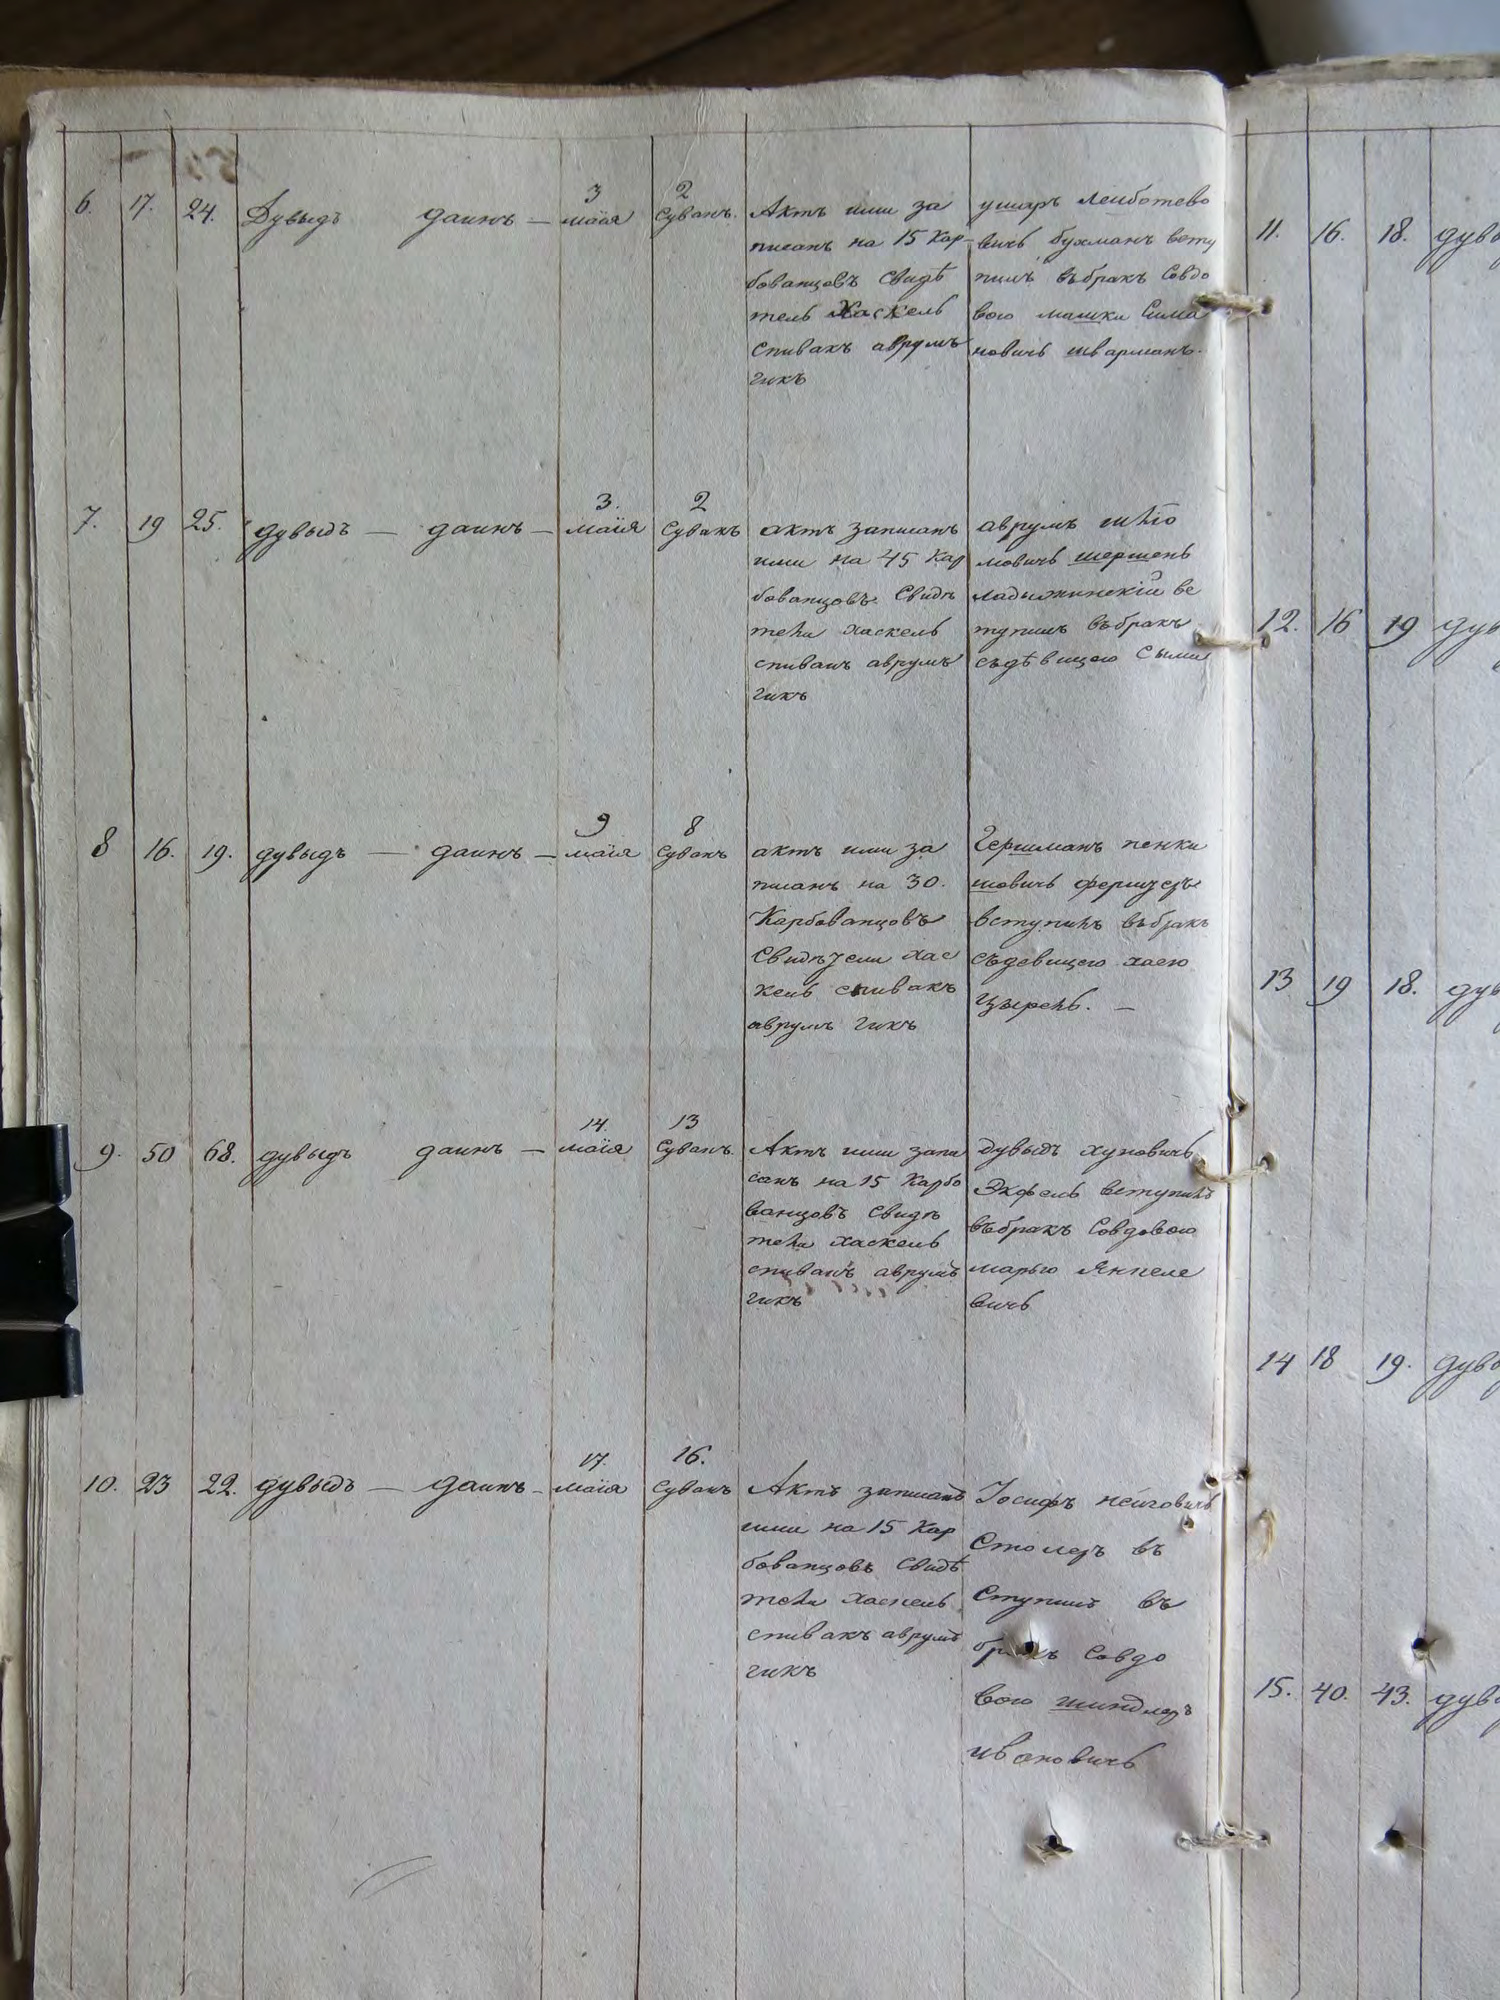 6. 17. 24. Дувыдъ даинъ — 3 маія 2 Суванъ.
Актъ ими за
писанъ на 15 Кар
бованцовъ Свидѣ
тель Хаскель
спивакъ аврумъ
гикъ
ушаръ Лейботево
вичь бухманъ всту
пилъ въбракъ Совдо
вою машки Сима
новичь шварманъ.
7. 19 25. дувыдъ — даинъ — 3. маія 2 Суванъ
актъ записанъ
ими на 45 Кар
бованцовъ Свидѣ
тели хаскель
спивакъ аврумъ
гикъ
аврумъ
мовичь шершень
ладыжинскій вс
тупилъ въбракъ
съдѣвицею Сыми
8 16. 19. дувыдъ — даинъ — 9 маія 8 Суванъ
актъ ими за
писанъ на 30.
Карбованцовъ
Свидѣтели хас
кель спивакъ
аврумъ гикъ
Гершманъ пенки
вступилъ въбракъ
съдевицею хаею
Цырель. —
9. 50 68. дувыдъ даинъ — 14. маія 13 Суванъ.
Актъ ими запи
санъ на 15 Карбо
ванцовъ Свидѣ
тели хаскель
спивакъ аврумъ
гикъ
дувыдъ хуновичь
вступилъ
въбракъ Совдовою
марью Янкеле
вичь
10. 23 22. дувыдъ — даинъ — 17. маія 16. Суванъ
Актъ записанъ
ими на 15 Кар
бованцовъ Свидѣ
тели хаскель
спивакъ аврумъ
гикъ
Іосифъ
Столеръ въ
Ступилъ въ
бракъ Совдо
вою шиндлеръ
ивановичь
11. 16. 18. дуво
12. 16 19 дув
13 19 18. дув
14 18 19. дуво
15. 40. 43. дув